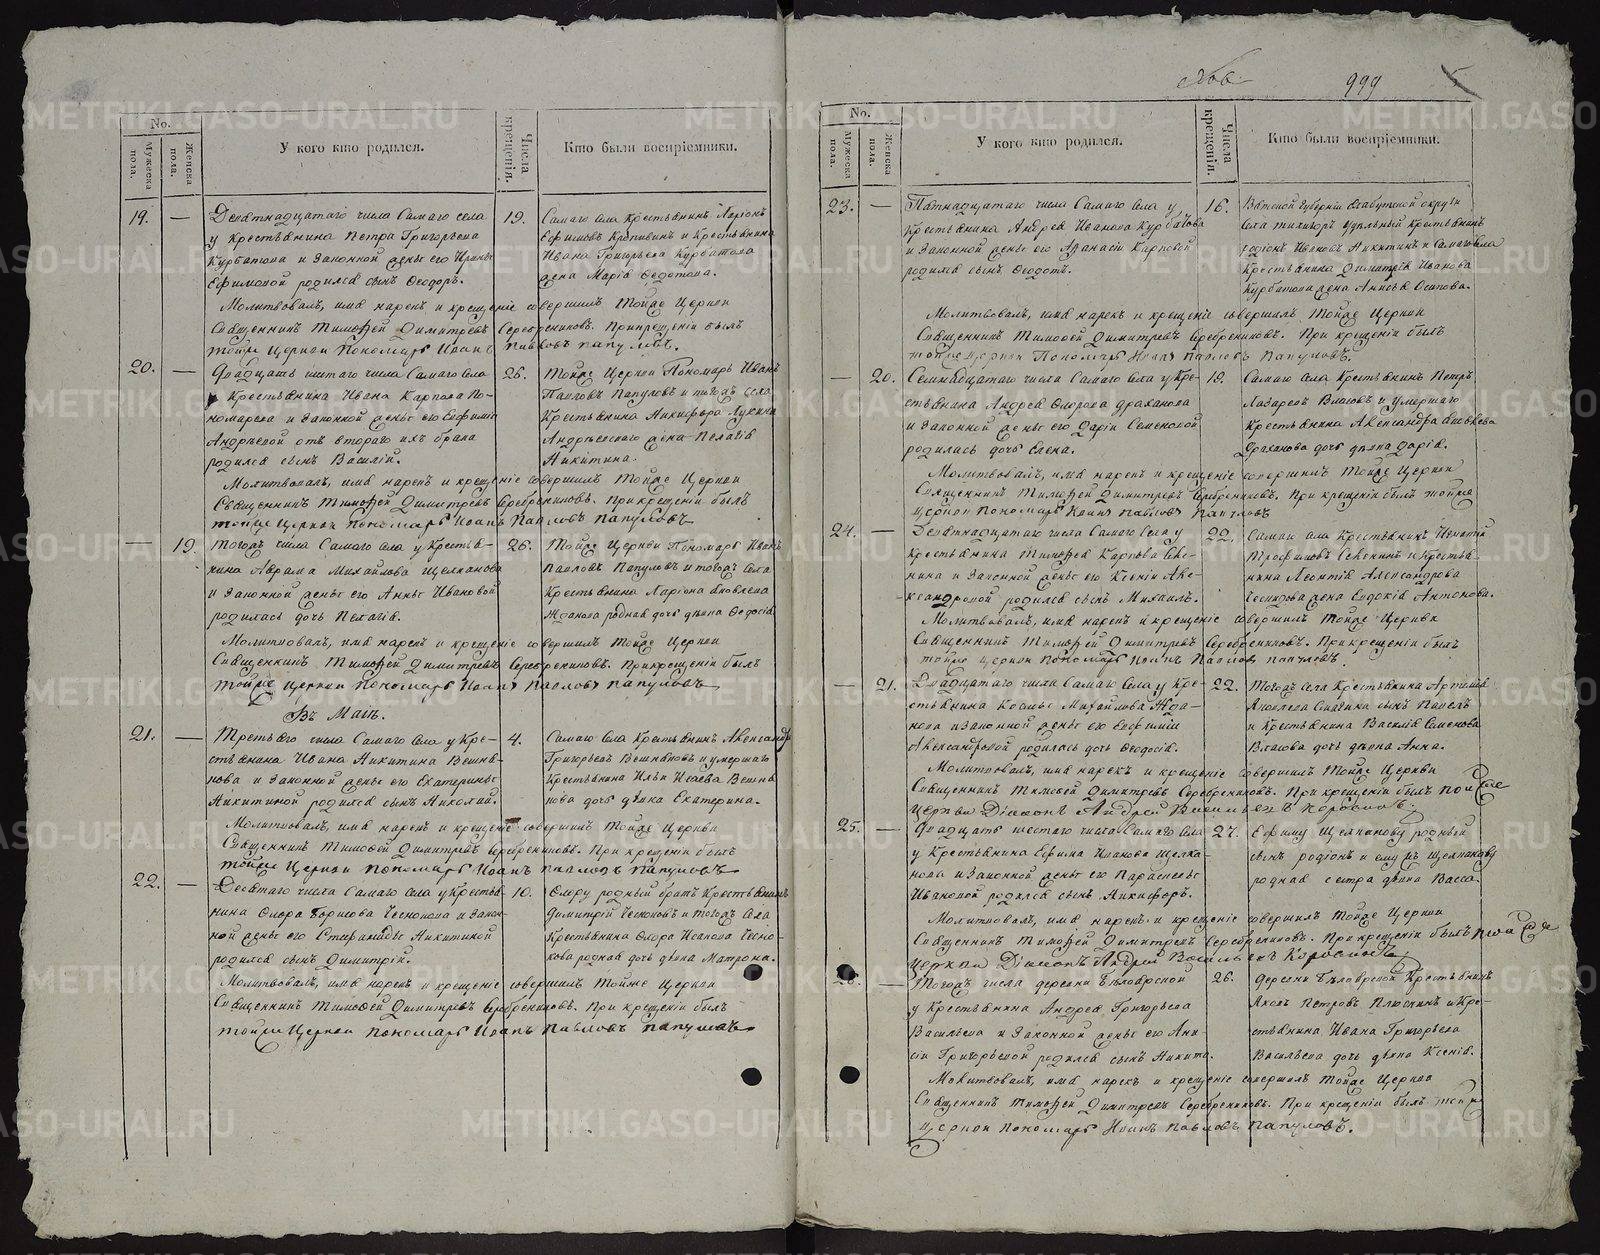 No.
Мужеска пола.
Женска пола.
У кого кто родился.
Числа крещенія.
Кто были воспріемники.
19.
—
Девятнадцатаго числа Самаго села
у крестьянина Петра Григорьева
Курбатова и законной жены его Ирины
Ефимовой родился сынъ Ѳеодоръ.
19.
Самаго села Крестьянинъ Ларіонъ
Ефимовъ Кропивинъ и Крестьянина
Ивана Григорьева Курбатова
жена Марія Ѳедотова.
Молитвовалъ, имя нарекъ и крещеніе совершилъ Тойже Церкви
Священникъ Тимоѳей Димитревъ Серебрениковъ. При крещеніи былъ
тойже Церкви Пономарь Иоанъ Павловъ Папуловъ.
20.
—
Двадцать шестаго числа Самаго села
у Крестьянина Ивана Карпова По-
номарева и законной жены его Евфиміи
Андреевой отъ втораго ихъ брака
родился сынъ Василій.
26.
Тойже Церкви Пономарь Иванъ
Павловъ Папуловъ и тогожъ села
Крестьянина Никифора Лукина
Андреевскаго жена Пелагія
Никитина.
Молитвовалъ, имя нарекъ и крещеніе совершилъ Тойже Церкви
Священникъ Тимоѳей Димитревъ Серебрениковъ. При крещеніи былъ
тойже Церкви Пономарь Иоанъ Павловъ Папуловъ
—
19.
Тогожъ числа Самаго села у Крестья-
нина Аврама Михайлова Щелканова
и законной жены его Анны Ивановой
родилась дочь Пелагія.
26.
Тойже Церкви Пономарь Иванъ
Павловъ Папуловъ и тогожъ села
Крестьянина Ларіона Яковлева
Жданова родная дочь девка Ѳедосія.
Молитвовалъ, имя нарекъ и крещеніе совершилъ Тойже Церкви
Священникъ Тимоѳей Димитревъ Серебрениковъ. При крещеніи былъ
тойже Церкви Пономарь Иоанъ Павловъ Папуловъ
Въ Маіѣ.
21.
—
Третьяго числа Самаго села у Кре-
стьянина Ивана Никитина Вешня-
кова и законной жены его Екатерины
Никитиной родился сынъ Николай.
4.
Самаго села Крестьянинъ Александръ
Григорьевъ Вешняковъ и умершаго
Крестьянина Ильи Исаева Вешня
кова дочь девка Екатерина.
Молитвовалъ, имя нарекъ и крещеніе совершилъ Тойже Церкви
Священникъ Тимоѳей Димитревъ Серебрениковъ. При крещеніи былъ
тойже Церкви Пономарь Иоанъ Павловъ Папуловъ
22.
—
Десятаго числа Самаго села у Крестья-
нина Флора Борисова Чеснокова и закон-
ной жены его Стефаниды Никитиной
родился сынъ Димитрій.
10.
Флору родный братъ Крестьянинъ
Димитрій Чесноковъ и тогожъ села
Крестьянина Флора Иванова Чесно-
кова родная дочь девка Матрона.
Молитвовалъ, имя нарекъ и крещеніе совершилъ Тойже Церкви
Священникъ Тимоѳей Димитревъ Серебрениковъ. При крещеніи былъ
тойже Церкви Пономарь Иоанъ Павловъ Папуловъ
999
No.
Мужеска пола.
Женска пола.
У кого кто родился.
Числа крещенія.
Кто были воспріемники.
23.
—
Пятнадцатаго числа Самаго села у
Крестьянина Андрея Иванова Курбатова
и законной жены его Афанасіи Карповой
родился сынъ Ѳеодотъ.
16.
Вятской губерніи Елабужской округи
села удѣльный крестьянинъ
Родіонъ Ивановъ Никитинъ и Самаго села
Крестьянина Димитрія Иванова
Курбатова жена Анисья Осипова.
Молитвовалъ, имя нарекъ и крещеніе совершилъ Тойже Церкви
Священникъ Тимоѳей Димитревъ Серебрениковъ. При крещеніи былъ
тойже Церкви Пономарь Иоанъ Павловъ Папуловъ.
—
20.
Семнадцатаго числа Самаго села у Кре-
стьянина Андрея Ѳедорова Драханова
и законной жены его Даріи Семеновой
родилась дочь Елена.
19.
Самаго села Крестьянинъ Петръ
Лазаревъ Власовъ и умершаго
Крестьянина Александра Яковлева
Драханова дочь девка Дарія.
Молитвовалъ, имя нарекъ и крещеніе совершилъ Тойже Церкви
Священникъ Тимоѳей Димитревъ Серебрениковъ. При крещеніи былъ тойже
Церкви Пономарь Иоанъ Павловъ Папуловъ
24.
—
Девятнадцатаго числа Самаго села у
Крестьянина Тимоѳея Карпова Севе-
нина и законной жены его Ксеніи Але-
ксандровой родился сынъ Михаилъ.
22.
Самаго села Крестьянинъ Игнатій
Трофимовъ Севенинъ и Крестья-
нина Леонтія Александрова
жена Евдокія Антонова.
Молитвовалъ, имя нарекъ и крещеніе совершилъ Тойже Церкви
Священникъ Тимоѳей Димитревъ Серебрениковъ. При крещеніи былъ
тойже Церкви Пономарь Иоанъ Павловъ Папуловъ.
—
21.
Двадцатаго числа Самаго села у Кре-
стьянина Космы Михайлова Жда-
нова и законной жены его Евфиміи
Александровой родилась дочь Ѳеодосія.
22.
Тогожъ села Крестьянина Артемія
Яковлева сынъ Павелъ
и Крестьянина Василія Семенова
Власова дочь девка Анна.
Молитвовалъ, имя нарекъ и крещеніе совершилъ Тойже Церкви
Священникъ Тимоѳей Димитревъ Серебрениковъ. При крещеніи былъ тойже
Церкви Діаконъ Андрей Васильевъ Коровинъ.
25.
—
Двадцать шестаго числа Самаго села
у Крестьянина Ефима Иванова Щелка-
нова и законной жены его Параскевы
Ивановой родился сынъ Никифоръ.
27.
Ефиму Щелканову родный
сынъ Родіонъ и ему жъ Щелканову
родная сестра девка Васса.
Молитвовалъ, имя нарекъ и крещеніе совершилъ Тойже Церкви
Священникъ Тимоѳей Димитревъ Серебрениковъ. При крещеніи былъ тойже
Церкви Діаконъ Андрей Васильевъ Коровинъ
26.
—
Тогожъ числа деревни Беловрской
у Крестьянина Андрея Григорьева
Васильева и законной жены его Ани-
сіи Григорьевой родился сынъ Никита.
26.
Деревни Беловрской Крестьянинъ
Яковъ Петровъ Плюснинъ и Кре-
стьянина Ивана Григорьева
Васильева дочь девка Ксенія.
Молитвовалъ, имя нарекъ и крещеніе совершилъ Тойже Церкви
Священникъ Тимоѳей Димитревъ Серебрениковъ. При крещеніи былъ тойже
Церкви Пономарь Иоанъ Павловъ Папуловъ.
METRIKI.GASO-URAL.RU